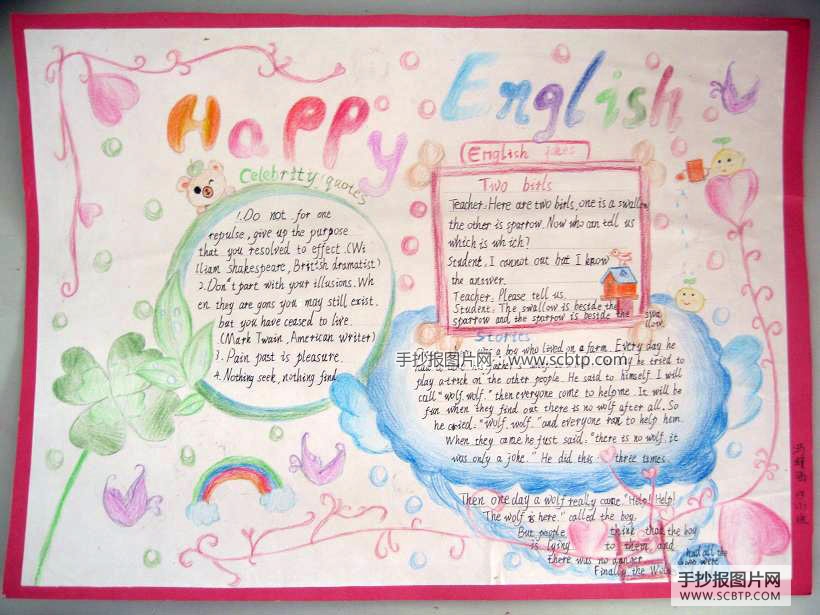 Happy English
Celebrity quotes
1. Do not for one
repulse, give up the purpose
that you resolved to effect. (Wi
lliam Shakespeare, British dramatist)
2. Don't part with your illusions. Wh
en they are gons you may still exist.
but you have ceased to live.
(Mark Twain, American writer)
3. Pain past is pleasure.
4. Nothing seek, nothing find
English jokes
Two birls
Teacher. Here are two birls, one is a swallow
the other is sparrow. Now who can tell us
which is which?
Student. I cannot out but I know
the answer.
Teacher. Please tell us.
Student. The swallow is beside the
sparrow and the sparrow is beside the swa
llow.
Stories
was a boy who lived on a farm. Every day he
he tried to
play a trick on the other people. He said to himself. I will
call "wolf. wolf." then everyone come to help me. It will be
fun when they find out there is no wolf after all. So
he cried. "Wolf. wolf." and everyone ran to help him.
When they came he just said. "there is no wolf. it
was only a joke." He did this three times.
Then one day a wolf really came "Help! Help!
The wolf is here." called the boy.
But people think that the boy
is lying to them and
there was no danger had all the
Finally the Wolf
手抄报图片网：www.scbtp.com
手抄报图片网
WWW.SCBTP.COM
手抄报图片网
WWW.SCBTP.COM